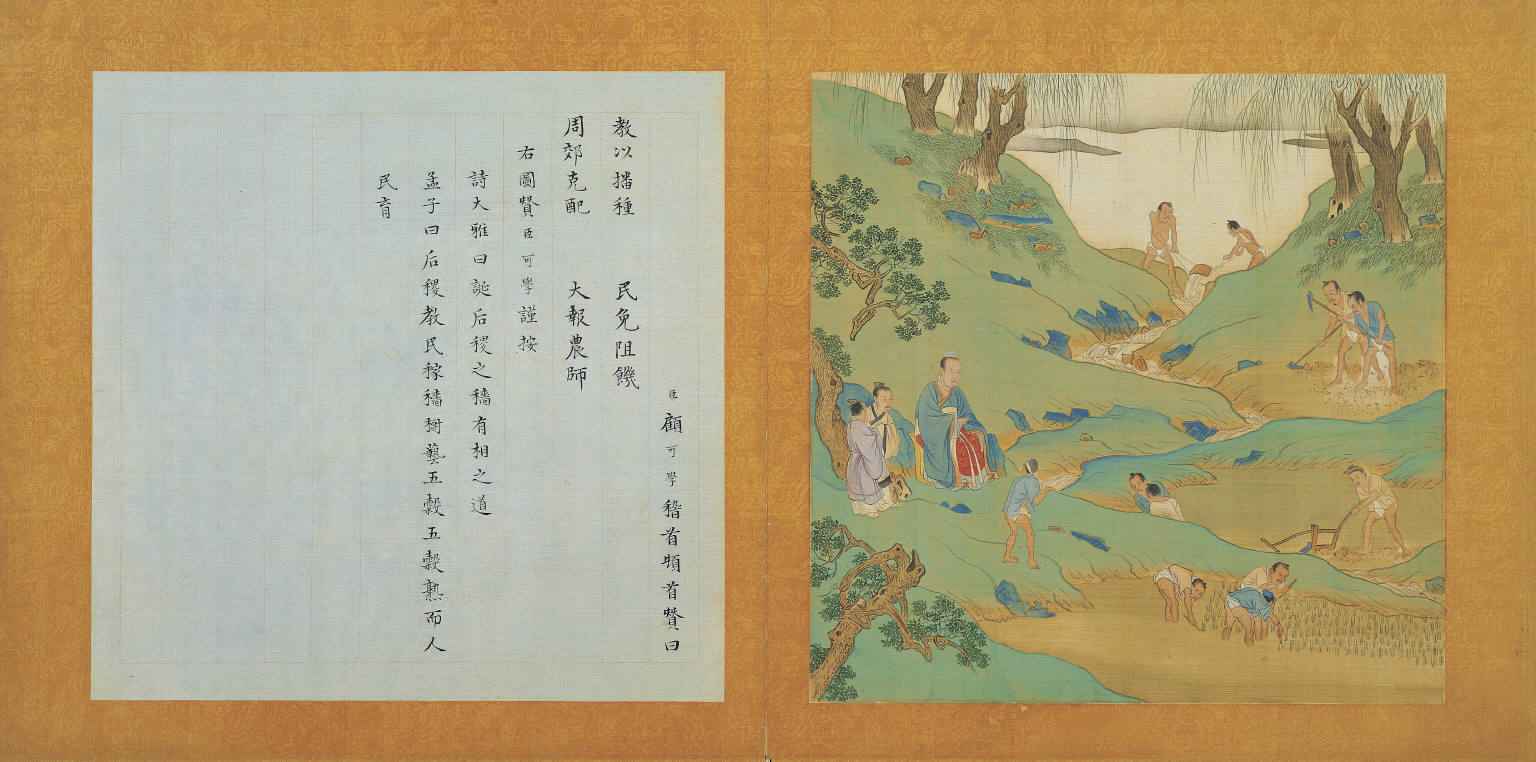 臣顧可學稽首頓首贊曰
教以播種 民免阻饑
周郊克配 大報農師
右圖贊臣可學謹按
詩大雅曰誕后稷之穡有相之道
孟子曰后稷教民稼穡樹藝五穀五穀熟而人
民育